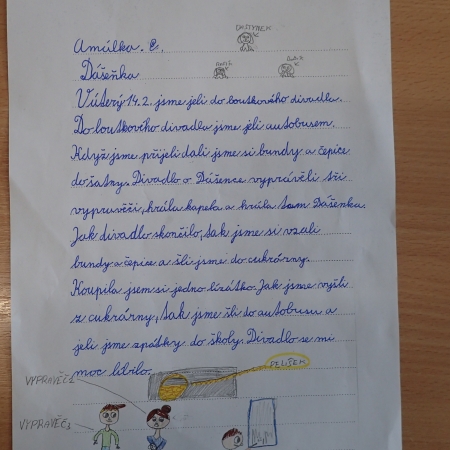 DAŠTYNEK
Amálka. Č.
Dášeňka
Vúterý 14.2. jsme jeli do loutkového divadla.
Do loutkového divadla jsme jeli autobusem.
Když jsme přijeli dali jsme si bundy a čepice
do šatny. Divadlo o Dášence vyprávěli tři
vypravěči, hrála kapela a hrála tam Dášenka.
Jak divadlo skončilo, tak jsme si vzali
bundy a čepice a šli jsme do cukrárny.
Koupila jsem si jedno lízátko. Jak jsme vyšli
z cukrárny, tak jsme šli do autobusu a
jeli jsme zpátky do školy. Divadlo se mi
moc líbilo.
PELÍŠEK
VYPRAVĚČ2
VYPRAVĚČ3